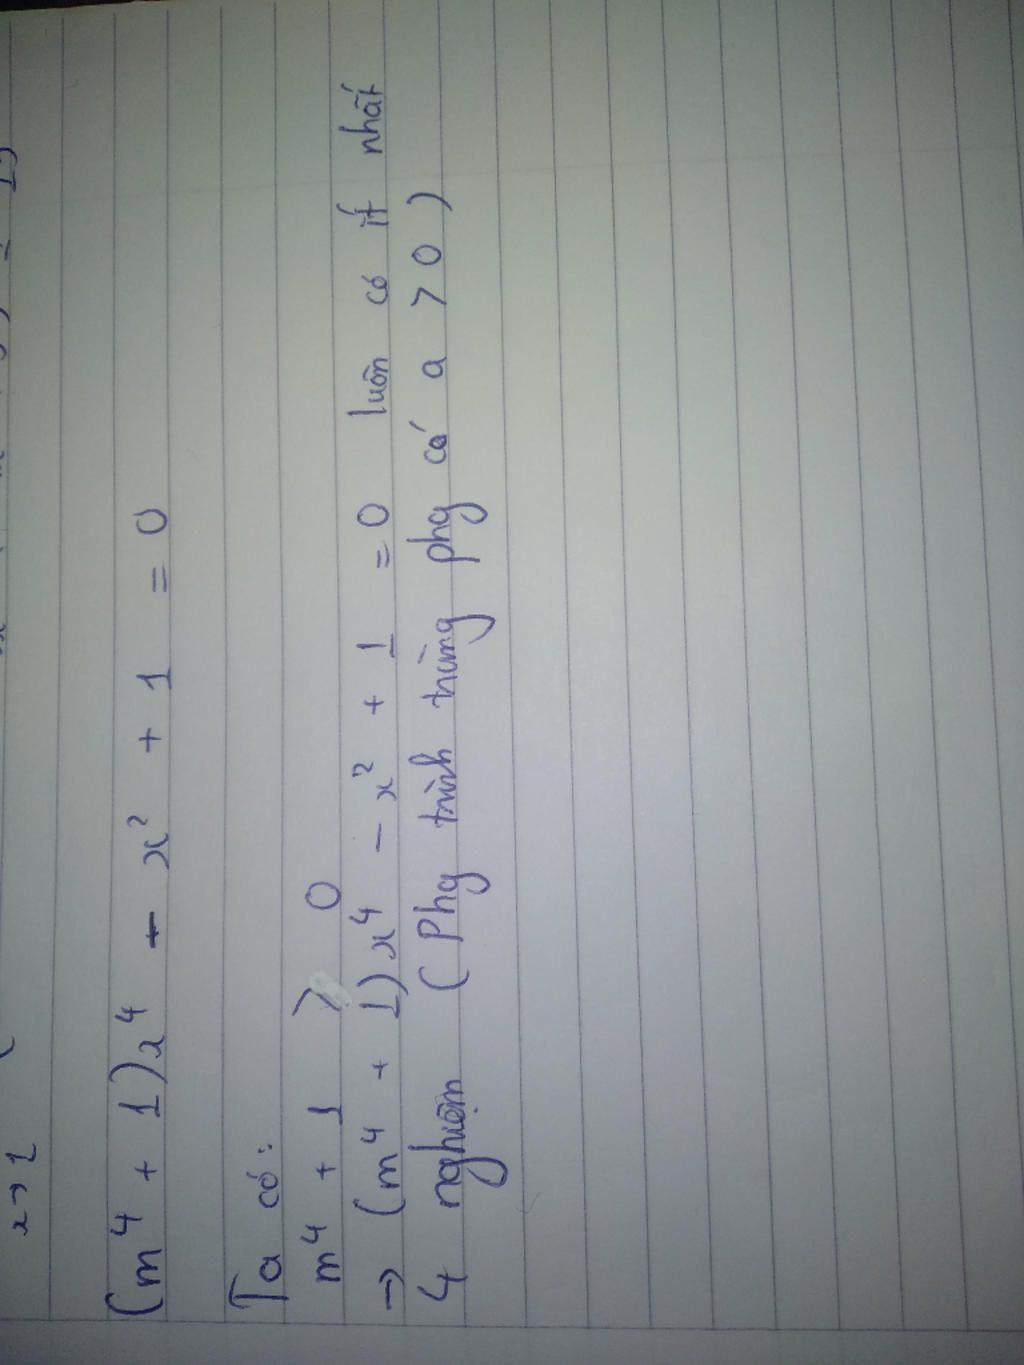 x → 1
(m⁴ + 1)x⁴ - x² + 1 = 0
Ta có:
m⁴ + 1 > 0
→ (m⁴ + 1)x⁴ - x² + 1 = 0 luôn có ít nhất
4 nghiệm (Phg trình trùng phg có a > 0)